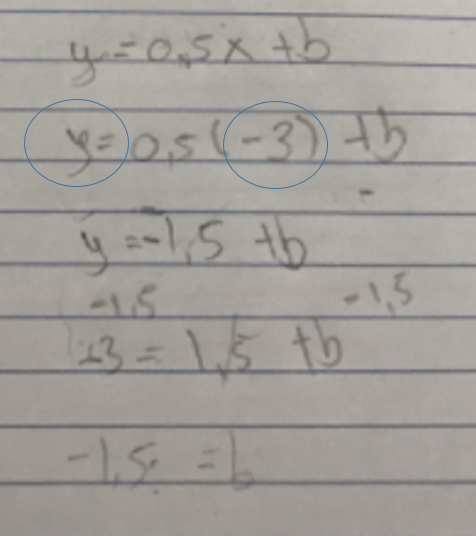 y=0,5x+b
y=0,5(-3)+b
-
y=-1,5 +b
-1,5 -1,5
-3 = 1,5 +b
-1,5 =b